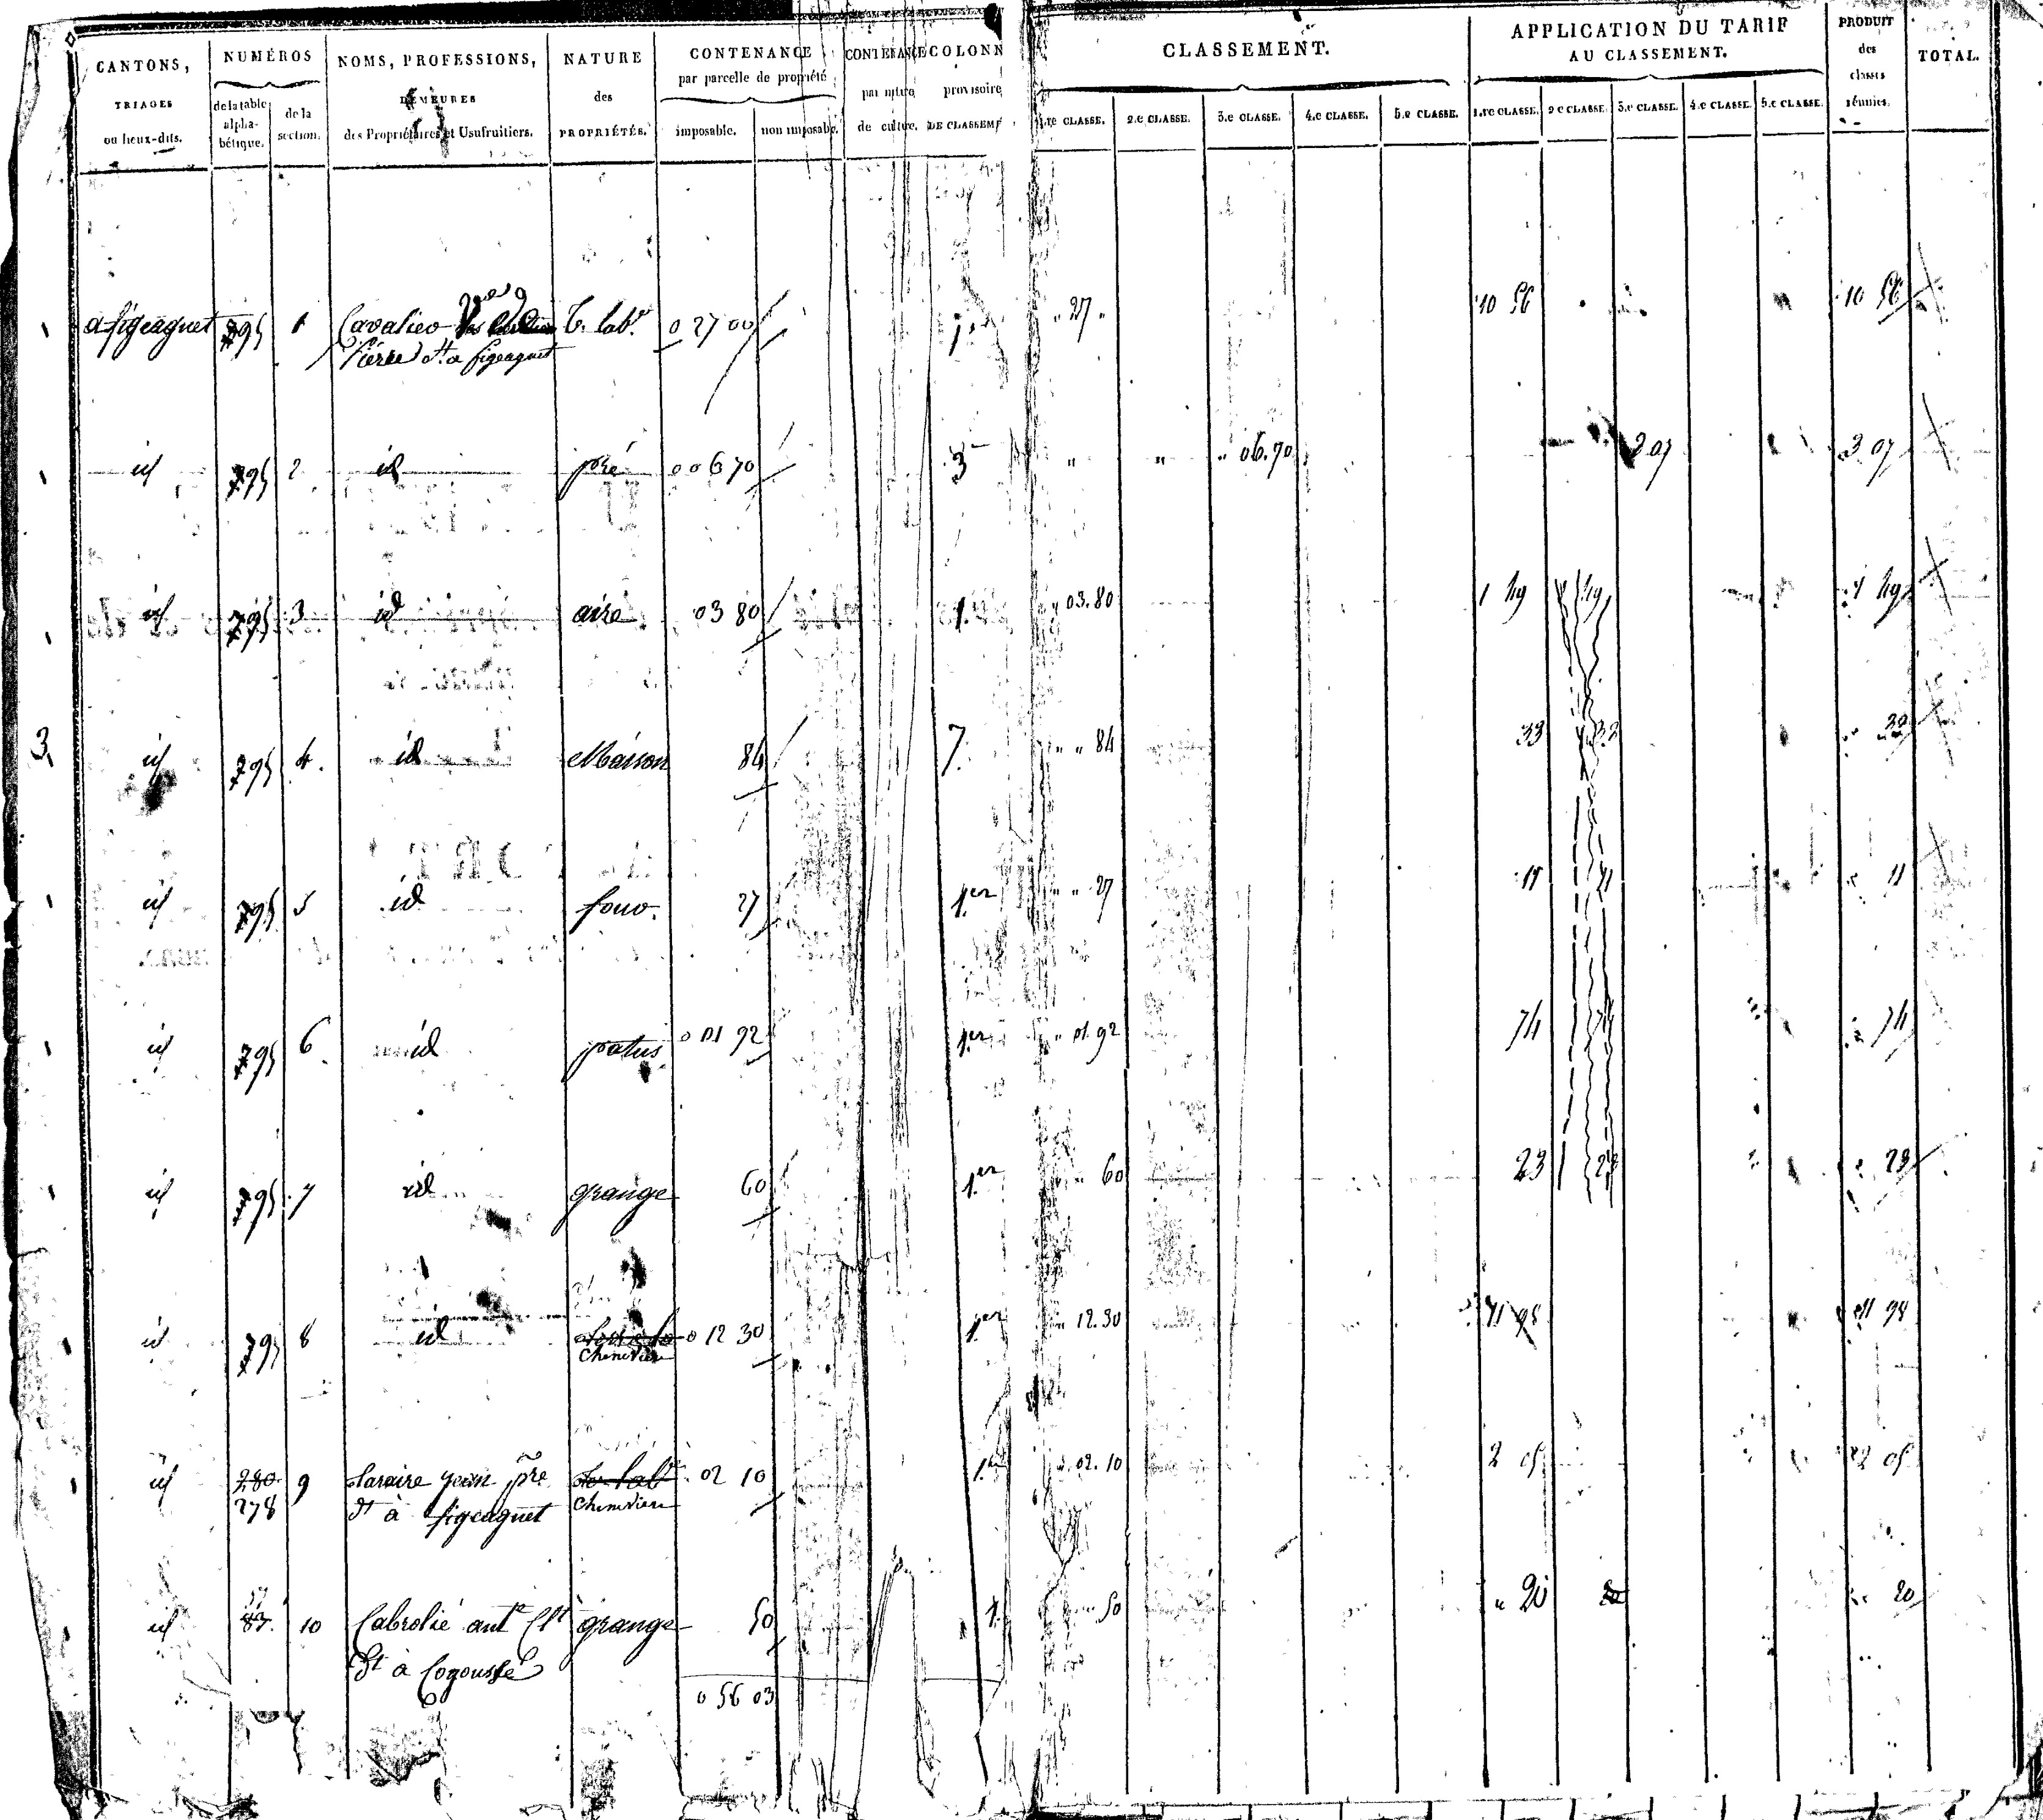 CANTONS, TRIAGES ou lieux-dits.
NUMÉROS de la table alphabétique. de la section.
NOMS, PROFESSIONS, DEMEURES des Propriétaires et Usufruitiers.
NATURE des PROPRIÉTÉS.
CONTENANCE par parcelle de propriété imposable. non imposable.
CONTENANCE par nature de culture.
COLONN provisoire DE CLASSEMt
CLASSEMENT.
1.re CLASSE. 2.e CLASSE. 3.e CLASSE. 4.e CLASSE. 5.e CLASSE.
APPLICATION DU TARIF AU CLASSEMENT.
1.re CLASSE. 2.e CLASSE. 3.e CLASSE. 4.e CLASSE. 5.e CLASSE.
PRODUIT des classes réunies.
TOTAL.
a figeaguet 795 1 Cavalier T. labe 0 27 00 1er " 27 " 10 56 10 56
Pierre dt a figeaguet
id 795 2 id pré 0 06 70 3 " " " 06.70 2 07 2 07
id 795 3 id aire 03 80 1. " 03.80 1 49 1 49
3
id 795 4 id Maison 84 7. " " 84 33 33
id 795 5 id four 27 1er " " 27 11 11 11
id 795 6 id patus 0 01 92 1er " 01.92 74 74 74
id 795 7 id grange 60 1er " 60 23 23 23
id 795 8 id 0 12 30 1er " 12.30
cheneviere
id 280 9 jean pre te labe 02 10 1er " 02.10 2 05 2 05
278 dt à figeaguet chenevière
id 83. 10 Cabrolié ante grange 50 1. " " 50 " 20 20 20
dt à Cogoussé
0 56 03